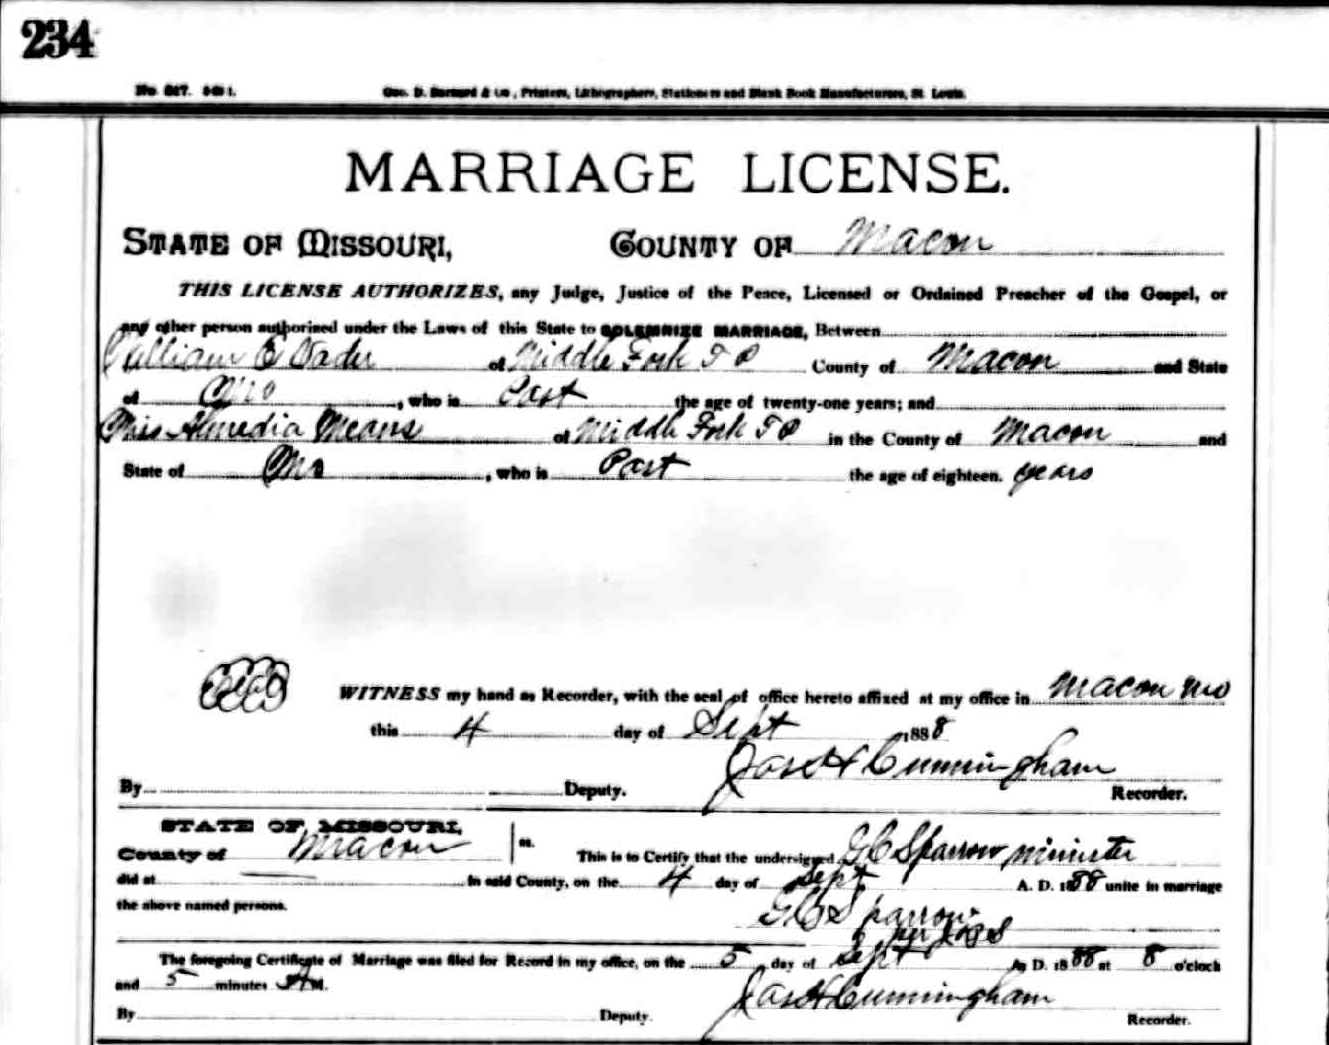 234
No. 847.
Geo. D. Barnard & Co., Printers, Lithographers, Stationers and Blank Book Manufacturers, St. Louis.
MARRIAGE LICENSE.
STATE OF MISSOURI, COUNTY OF Macon
THIS LICENSE AUTHORIZES, any Judge, Justice of the Peace, Licensed or Ordained Preacher of the Gospel, or
any other person authorized under the Laws of this State to SOLEMNIZE MARRIAGE, Between
William E Vader of Middle Fork T P County of Macon and State
of Mo, who is Past the age of twenty-one years; and
Miss Almedia Means of Middle Fork T P in the County of Macon and
State of Mo, who is Past the age of eighteen. years
Seal WITNESS my hand as Recorder, with the seal of office hereto affixed at my office in Macon Mo
this 4 day of Sept 1888
Jas H Cunningham
By Deputy. Recorder.
STATE OF MISSOURI,
County of Macon ss. This is to Certify that the undersigned G C Sparrow minister
did at in said County, on the 4 day of Sept A. D. 1888 unite in marriage
the above named persons.
G C Sparrow
The foregoing Certificate of Marriage was filed for Record in my office, on the 5 day of Sept A. D. 1888 at 8 o'clock
and 5 minutes A M.
Jas H Cunningham
By Deputy. Recorder.